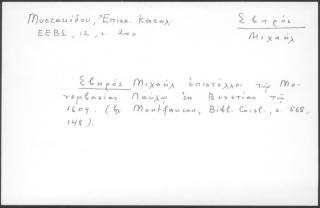 Μυστακίδου, Ἐπισκ. Κατάλ.
ΕΕΒΣ, 12, σ. 200
Σβηρός
Μιχαήλ
Σβηρός Μιχαήλ ἐπιστέλλει τῷ Μο-
νεμβασίας Παύλῳ ἐκ Βενετίας τῷ
1604. (βλ. Montfaucon, Bibl. Coisl., σ. 568,
148).